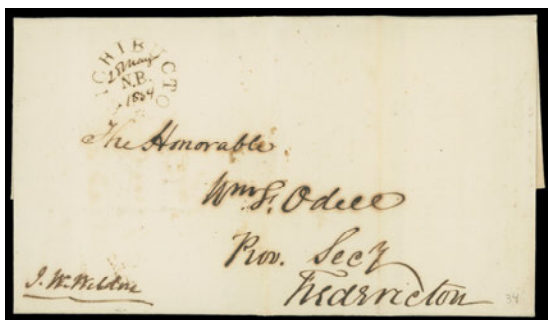 RICHIBUCTO
28 May
N.B.
1834
The Honorable
Wm F. Odell
Prov. Secy
Fredericton
J. W. Weldon
34